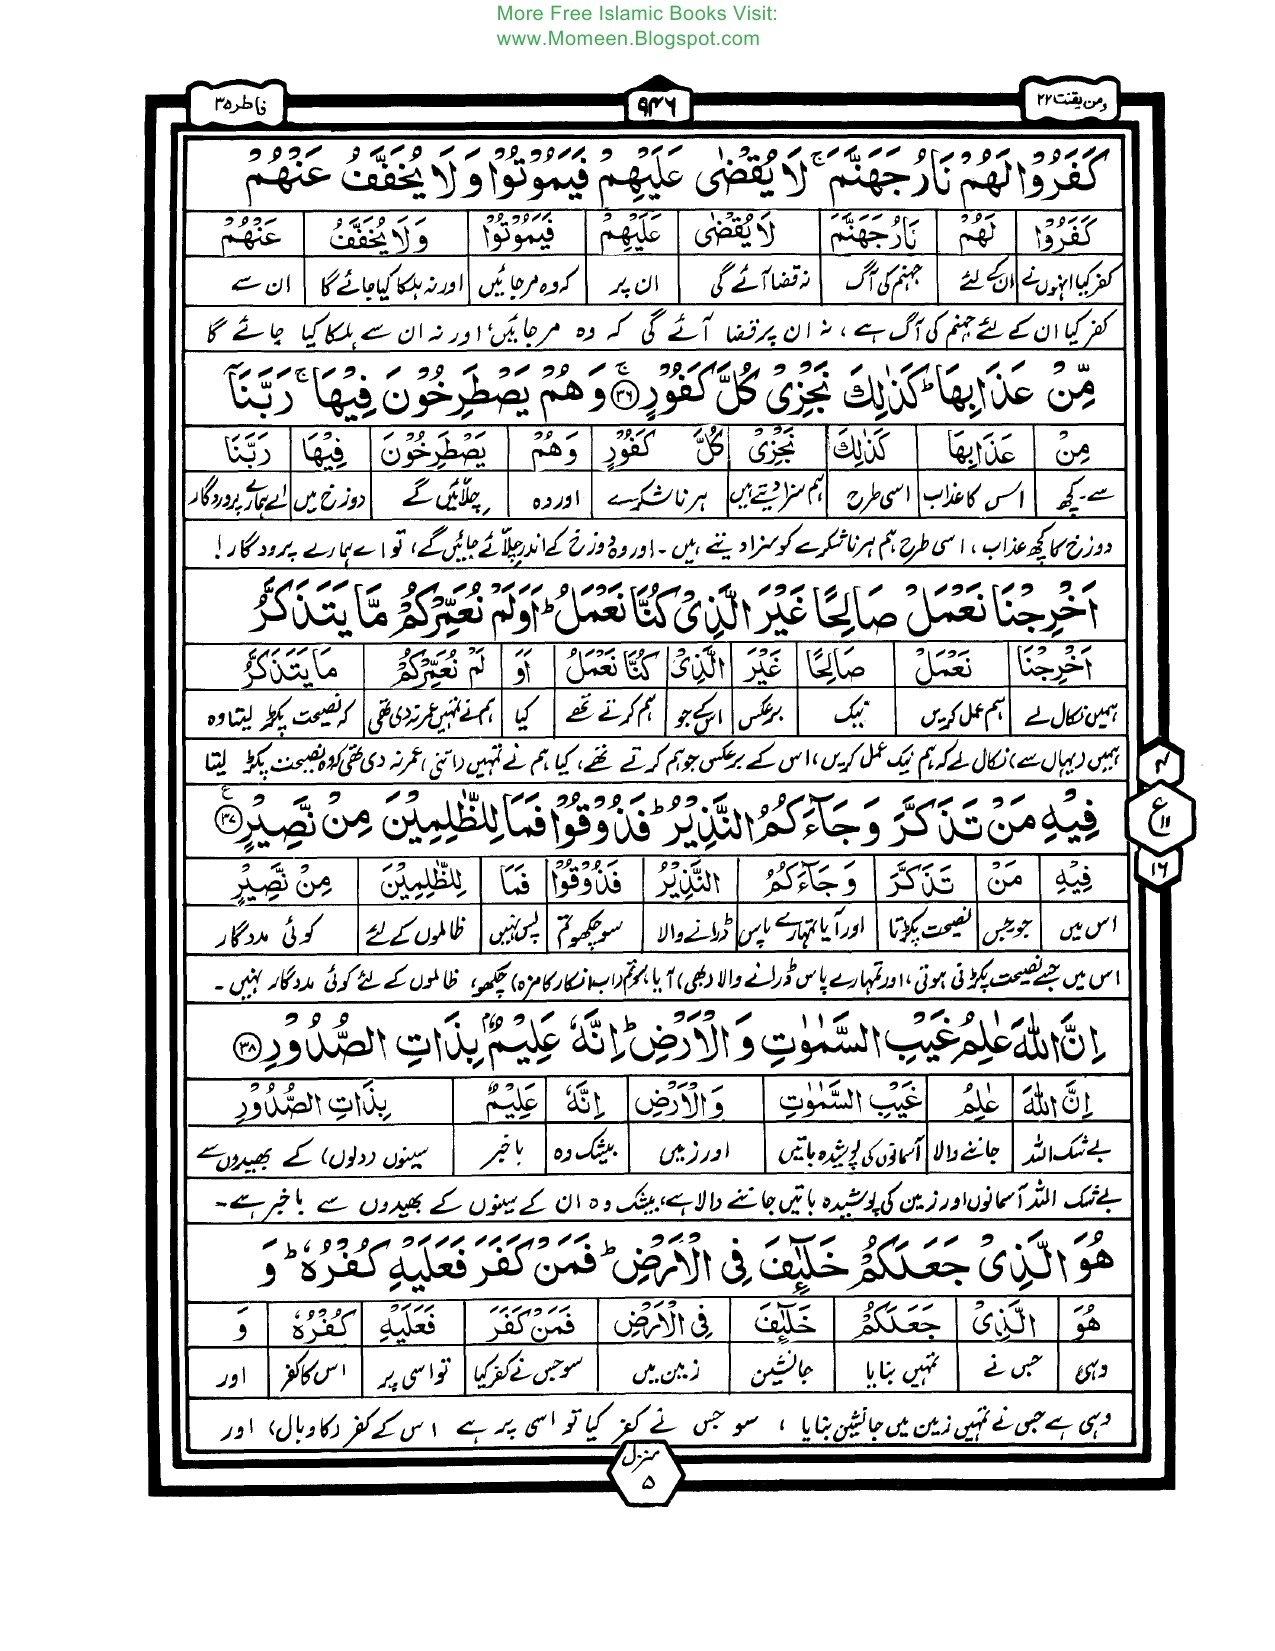 More Free Islamic Books Visit:
www.Momeen.Blogspot.com
ومن یقنت ۲۲ ۹۴۶ فاطر ۳۵
كَفَرُوْا لَهُمْ نَارُ جَهَنَّمَ ۚ لَا يُقْضٰى عَلَيْهِمْ فَيَمُوْتُوْا وَلَا يُخَفَّفُ عَنْهُمْ
كَفَرُوْا لَهُمْ نَارُ جَهَنَّمَ لَا يُقْضٰى عَلَيْهِمْ فَيَمُوْتُوْا وَلَا يُخَفَّفُ عَنْهُمْ
کفر کیا انہوں نے ان کے لئے جہنم کی آگ نہ قضا آئے گی ان پر کہ وہ مر جائیں اور نہ ہلکا کیا جائے گا ان سے
کفر کیا ان کے لئے جہنم کی آگ ہے، نہ ان پر قضا آئے گی کہ وہ مر جائیں، اور نہ ان سے ہلکا کیا جائے گا
مِّنْ عَذَابِهَا ؕ كَذٰلِكَ نَجْزِىْ كُلَّ كَفُوْرٍ ۚ ۳۶ وَهُمْ يَصْطَرِخُوْنَ فِيْهَا ۚ رَبَّنَآ
مِنْ عَذَابِهَا كَذٰلِكَ نَجْزِىْ كُلَّ كَفُوْرٍ وَهُمْ يَصْطَرِخُوْنَ فِيْهَا رَبَّنَا
سے۔ کچھ اس کا عذاب اسی طرح ہم سزا دیتے ہیں ہر ناشکرے اور وہ چلّائیں گے دوزخ میں اے ہمارے پروردگار
دوزخ کا کچھ عذاب، اسی طرح ہم ہر ناشکرے کو سزا دیتے ہیں۔ اور وہ دوزخ کے اندر چلّائے جائیں گے، تو اے ہمارے پرودگار!
اَخْرِجْنَا نَعْمَلْ صَالِحًا غَيْرَ الَّذِىْ كُنَّا نَعْمَلُ ؕ اَوَلَمْ نُعَمِّرْكُمْ مَّا يَتَذَكَّرُ
اَخْرِجْنَا نَعْمَلْ صَالِحًا غَيْرَ الَّذِىْ كُنَّا نَعْمَلُ اَوَ لَمْ نُعَمِّرْكُمْ مَا يَتَذَكَّرُ
ہمیں نکال لے ہم عمل کریں نیک برعکس اس کے جو ہم کرتے تھے کیا ہم نے نہیں عمر نہ دی تھی کہ نصیحت پکڑ لیتا وہ
ہمیں (یہاں سے) نکال لے کہ ہم نیک عمل کریں، اس کے برعکس جو ہم کرتے تھے، کیا ہم نے تمہیں (اتنی) عمر نہ دی تھی کہ وہ نصیحت پکڑ لیتا
فِيْهِ مَنْ تَذَكَّرَ وَجَآءَكُمُ النَّذِيْرُ ؕ فَذُوْقُوْا فَمَا لِلظّٰلِمِيْنَ مِنْ نَّصِيْرٍ ۳۷ ع
۴
ع ۱۱
۱۶
فِيْهِ مَنْ تَذَكَّرَ وَجَآءَكُمُ النَّذِيْرُ فَذُوْقُوْا فَمَا لِلظّٰلِمِيْنَ مِنْ نَّصِيْرٍ
اس میں جو جس نصیحت پکڑتا اور آیا تمہارے پاس ڈرانے والا سو چکھو تم پس نہیں ظالموں کے لئے کوئی مددگار
اس میں جسے نصیحت پکڑنی ہوتی، اور تمہارے پاس ڈرانے والا (بھی) آیا، سو تم (اب انکار کا مزہ) چکھو، ظالموں کے لئے کوئی مددگار نہیں۔
اِنَّ اللّٰهَ عٰلِمُ غَيْبِ السَّمٰوٰتِ وَالْاَرْضِ ؕ اِنَّهٗ عَلِيْمٌۢ بِذَاتِ الصُّدُوْرِ ۳۸
اِنَّ اللّٰهَ عٰلِمُ غَيْبِ السَّمٰوٰتِ وَالْاَرْضِ اِنَّهٗ عَلِيْمٌ بِذَاتِ الصُّدُوْرِ
بےشک اللہ جاننے والا آسمانوں کی پوشیدہ باتیں اور زمین بیشک وہ باخبر سینوں (دلوں) کے بھیدوں سے
بے شک اللہ آسمانوں اور زمین کی پوشیدہ باتیں جاننے والا ہے، بیشک وہ ان کے سینوں کے بھیدوں سے باخبر ہے۔
هُوَ الَّذِىْ جَعَلَكُمْ خَلٰٓئِفَ فِى الْاَرْضِ ؕ فَمَنْ كَفَرَ فَعَلَيْهِ كُفْرُهٗ ؕ وَ
هُوَ الَّذِىْ جَعَلَكُمْ خَلٰٓئِفَ فِى الْاَرْضِ فَمَنْ كَفَرَ فَعَلَيْهِ كُفْرُهٗ وَ
وہی جس نے تمہیں بنایا جانشین زمین میں سو جس نے کفر کیا تو اسی پر اس کا کفر اور
وہی ہے جس نے تمہیں زمین میں جانشین بنایا، سو جس نے کفر کیا تو اسی پر ہے اس کے کفر (کا وبال) اور
منزل ۵